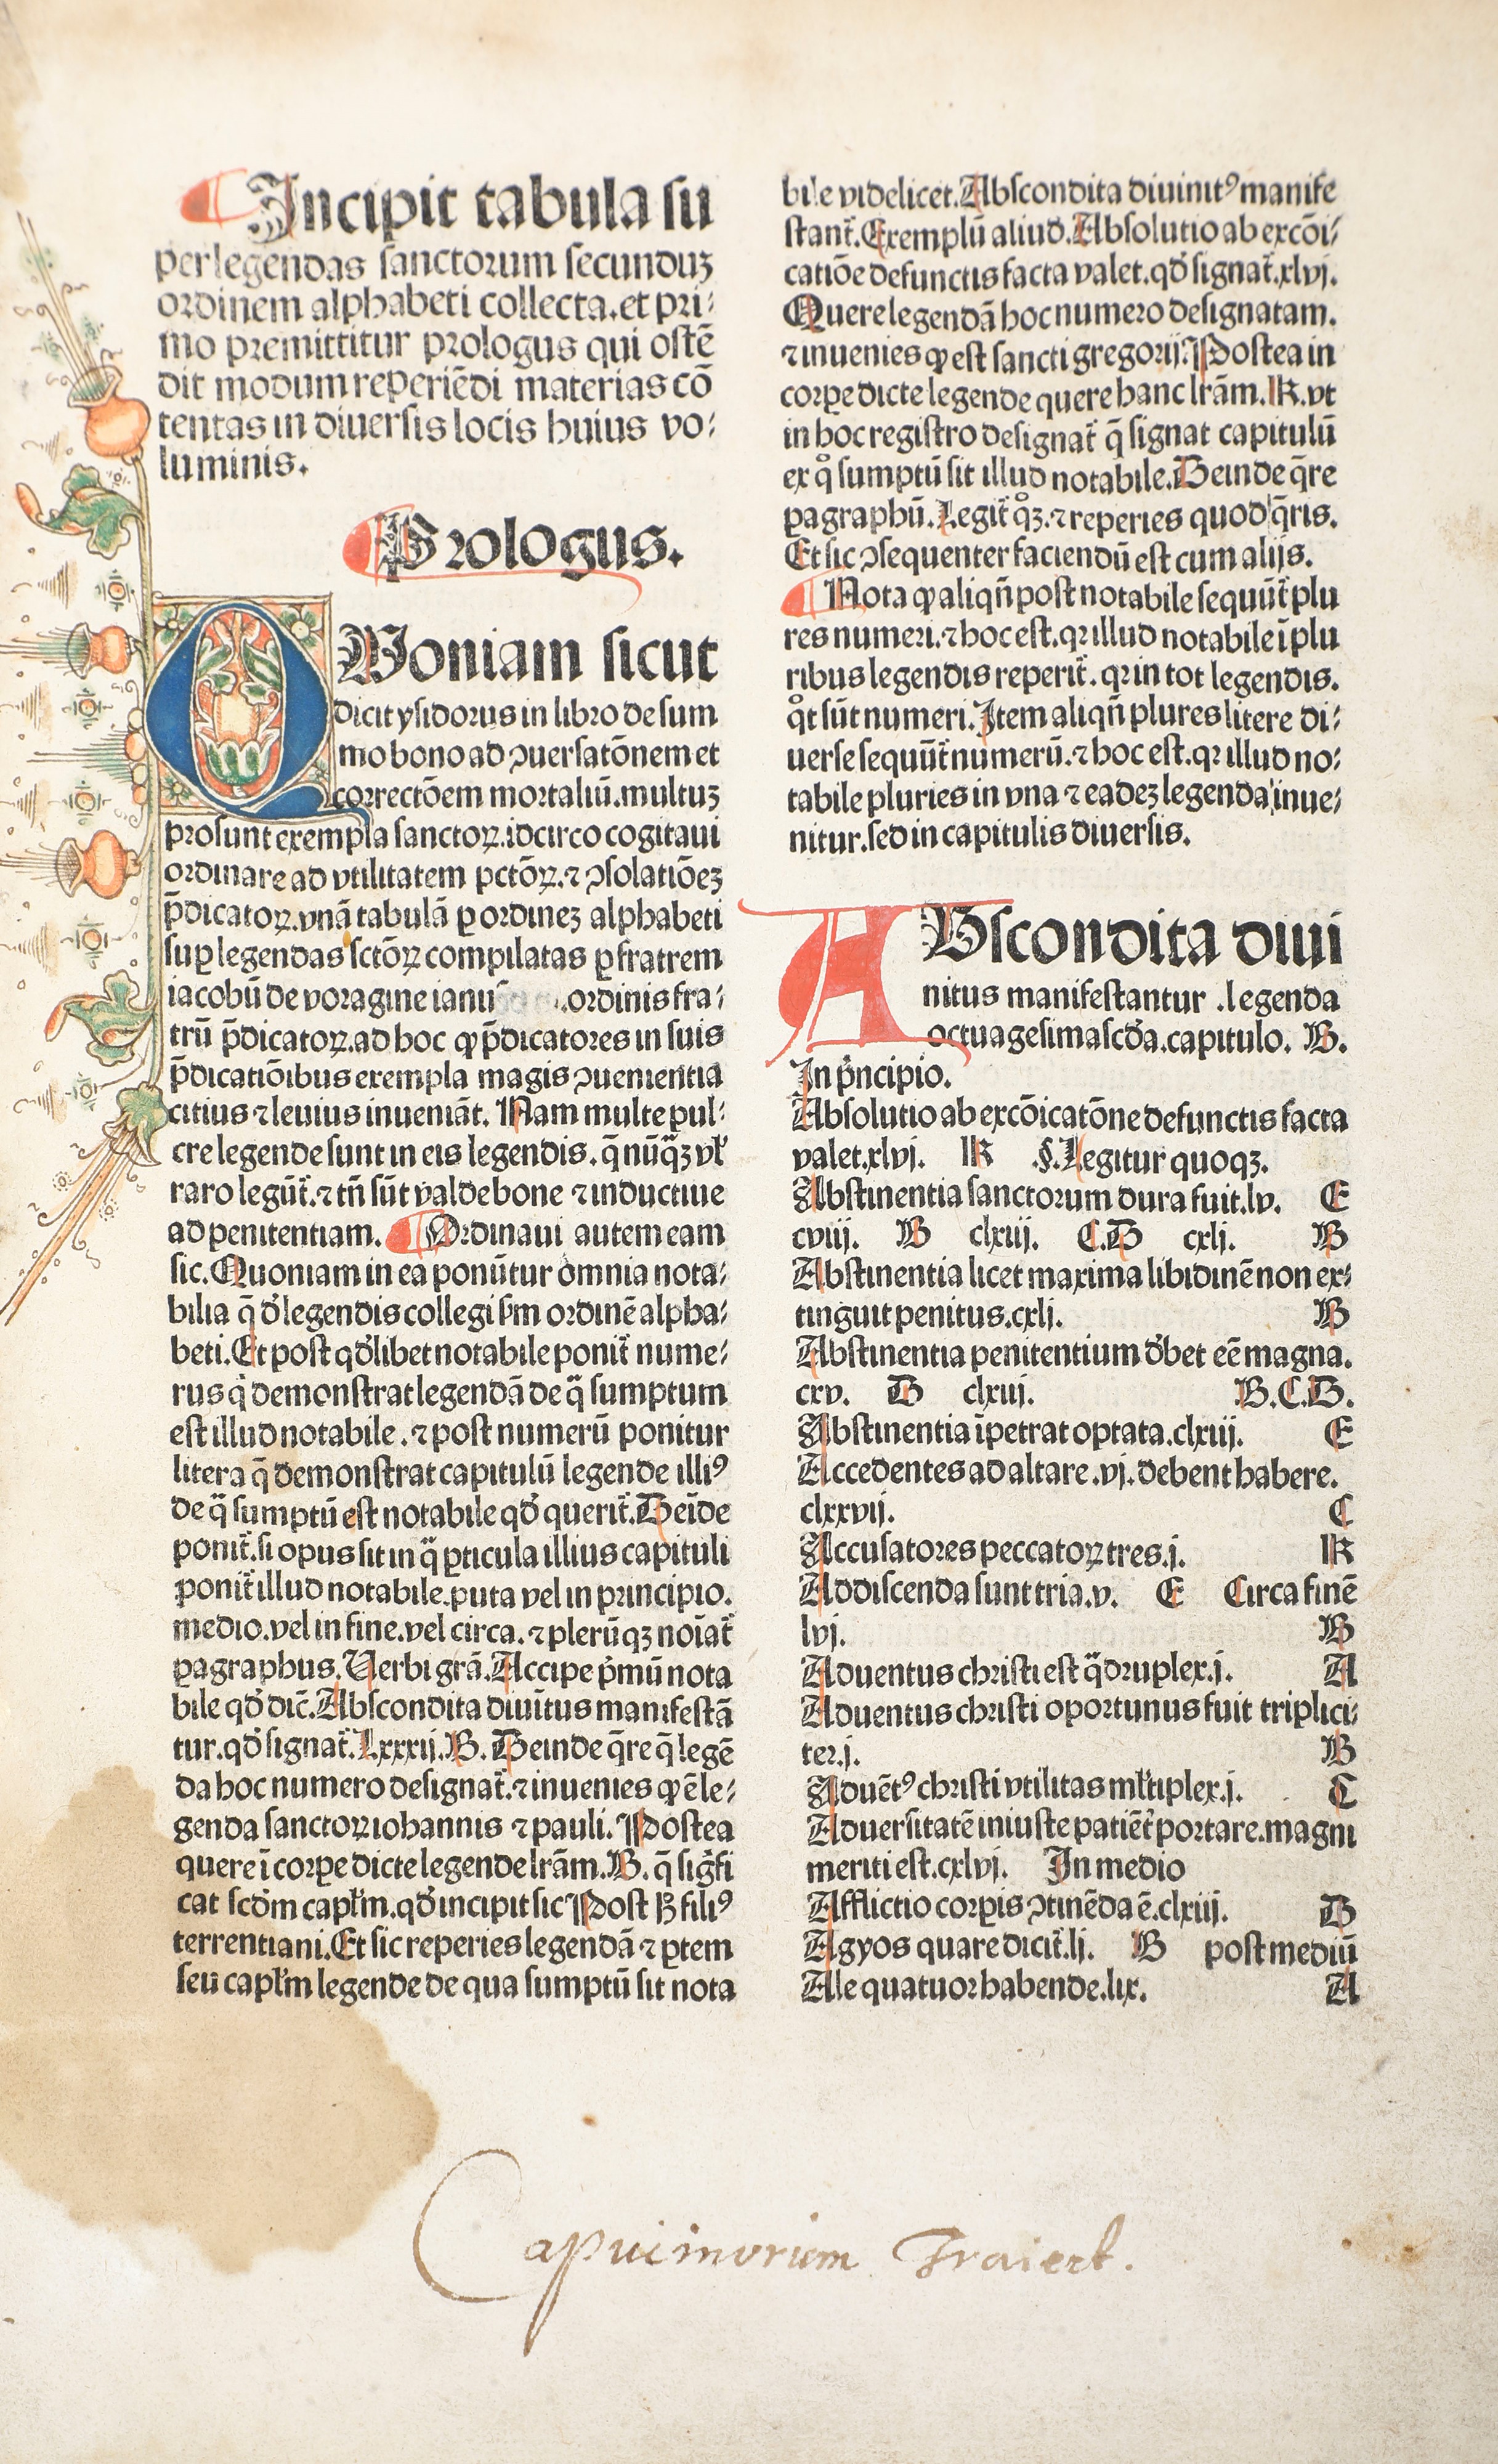 Incipit tabula su
per legendas sanctorum secunduʒ
ordinem alphabeti collecta.et pri⸗
mo premittitur prologus qui ostē
dit modum reperiēdi materias cō
tentas in diuersis locis huius vo⸗
luminis.
Prologus.
QUoniam sicut
dicit ysidorus in libro de sum
mo bono ad ꝯuersatōnem et
correctōem mortaliū.multuʒ
prosunt exempla sanctoꝝ.idcirco cogitaui
ordinare ad vtilitatem pctōꝝ.⁊ ꝯsolatiōeʒ
p̄dicatoꝝ.vnā tabulā ꝑ ordineʒ alphabeti
suꝑ legendas sctōꝝ compilatas ꝑ fratrem
iacobū de voragine ianu .ordinis fra⸗
trū p̄dicatoꝝ.ad hoc ꝙ p̄dicatores in suis
p̄dicatiōibus exempla magis ꝯuenientia
citius ⁊ leuius inueniāt. Nam multe pul⸗
cre legende sunt in eis legendis.q̄ nūq̄ʒ vl̕
raro legūt᷑.⁊ tn̄ sūt valde bone ⁊ inductiue
ad penitentiam. Ordinaui autem eam
sic.Quoniam in ea ponūtur omnia nota⸗
bilia q̄ d̕ legendis collegi ẜm ordinē alpha⸗
beti.Et post qd̕libet notabile ponit᷑ nume⸗
rus q̇ demonstrat legendā de qᷓ sumptum
est illud notabile.⁊ post numerū ponitur
litera q̄ demonstrat capitulū legende illiꝰ
de qᷓ sumptū est notabile qd̕ querit᷑.Deīde
ponit᷑.si opus sit in qᷓ ꝑticula illius capituli
ponit᷑ illud notabile.puta vel in principio.
medio.vel in fine.vel circa.⁊ plerūqʒ noīat᷑
ꝑagraphus.Uerbi grā.Accipe p̓mū nota
bile qd̕ dic̄.Abscondita diuītus manifestā
tur.qd̕ signat᷑.Lxxxij.B.Deinde q̄re q̄ legē
da hoc numero designat᷑.⁊ inuenies ꝙ ē le⸗
genda sanctoꝝ iohannis ⁊ pauli. Postea
quere ī corꝑe dicte legende lr̄am.B.q̄ sig̕fi
cat scd̕m capl̕m.qd̕ incipit sic Post ß filiꝰ
terrentiani.Et sic reperies legendā ⁊ ꝑtem
seu capl̕m legende de qua sumptū sit nota
bile videlicet.Abscondita diuinitꝰ manife
stant᷑.Exemplū aliud.Absolutio ab excōi⸗
catiōe defunctis facta valet.qd̕ signat᷑.xlvj.
Quere legendā hoc numero designatam.
⁊ inuenies ꝙ est sancti gregorij. Postea in
corꝑe dicte legende quere hanc lr̄am.K.vt
in hoc registro designat᷑ q̄ signat capitulū
ex qͦ sumptū sit illud notabile.Deinde q̄re
ꝑagraphū.Legit᷑ qͦʒ.⁊ reperies quod q̄ris.
Et sic ꝯsequenter faciendū est cum alijs.
Nota ꝙ aliqn̄ post notabile sequūt᷑ plu
res numeri.⁊ hoc est.qꝛ illud notabile ī plu
ribus legendis reperit᷑.qꝛ in tot legendis.
qͦt sūt numeri.Item aliqn̄ plures litere di⸗
uerse sequūt᷑ numerū.⁊ hoc est.qꝛ illud no⸗
tabile pluries in vna ⁊ eadeʒ legenda inue⸗
nitur.sed in capitulis diuersis.
ABscondita diui
nitus manifestantur .legenda
octuagesimascd̕a.capitulo. B.
In p̓ncipio.
Absolutio ab excōicatōne defunctis facta
valet.xlvj. K .§.Legitur quoqʒ.
Abstinentia sanctorum dura fuit.lv. E
cviij. B clxiij. C.D cxlj. B
Abstinentia licet maxima libidinē non ex⸗
tinguit penitus.cxlj. B
Abstinentia penitentium d̕bet eē magna.
cxv. D clxij. B.C.D.
Abstinentia īpetrat optata.clxiij. E
Accedentes ad altare .vj.debent habere.
clxxvij. C
Accusatores peccatoꝝ tres.j. K
Addiscenda sunt tria.v. E Circa finē
lvj. B
Aduentus christi est qᷓdruplex.j. A
Aduentus christi oportunus fuit triplici⸗
ter.j. B
Aduētꝰ christi vtilitas ml̕tiplex.j. C
Aduersitatē iniuste patiēt᷑ portare.magni
meriti est.cxlvj. In medio
Afflictio corꝑis ꝯtinēda ē.clxiij. D
Agyos quare dicit᷑.lj. B post mediū
Ale quatuor habende.lix. A
Capucinorum Traiect.